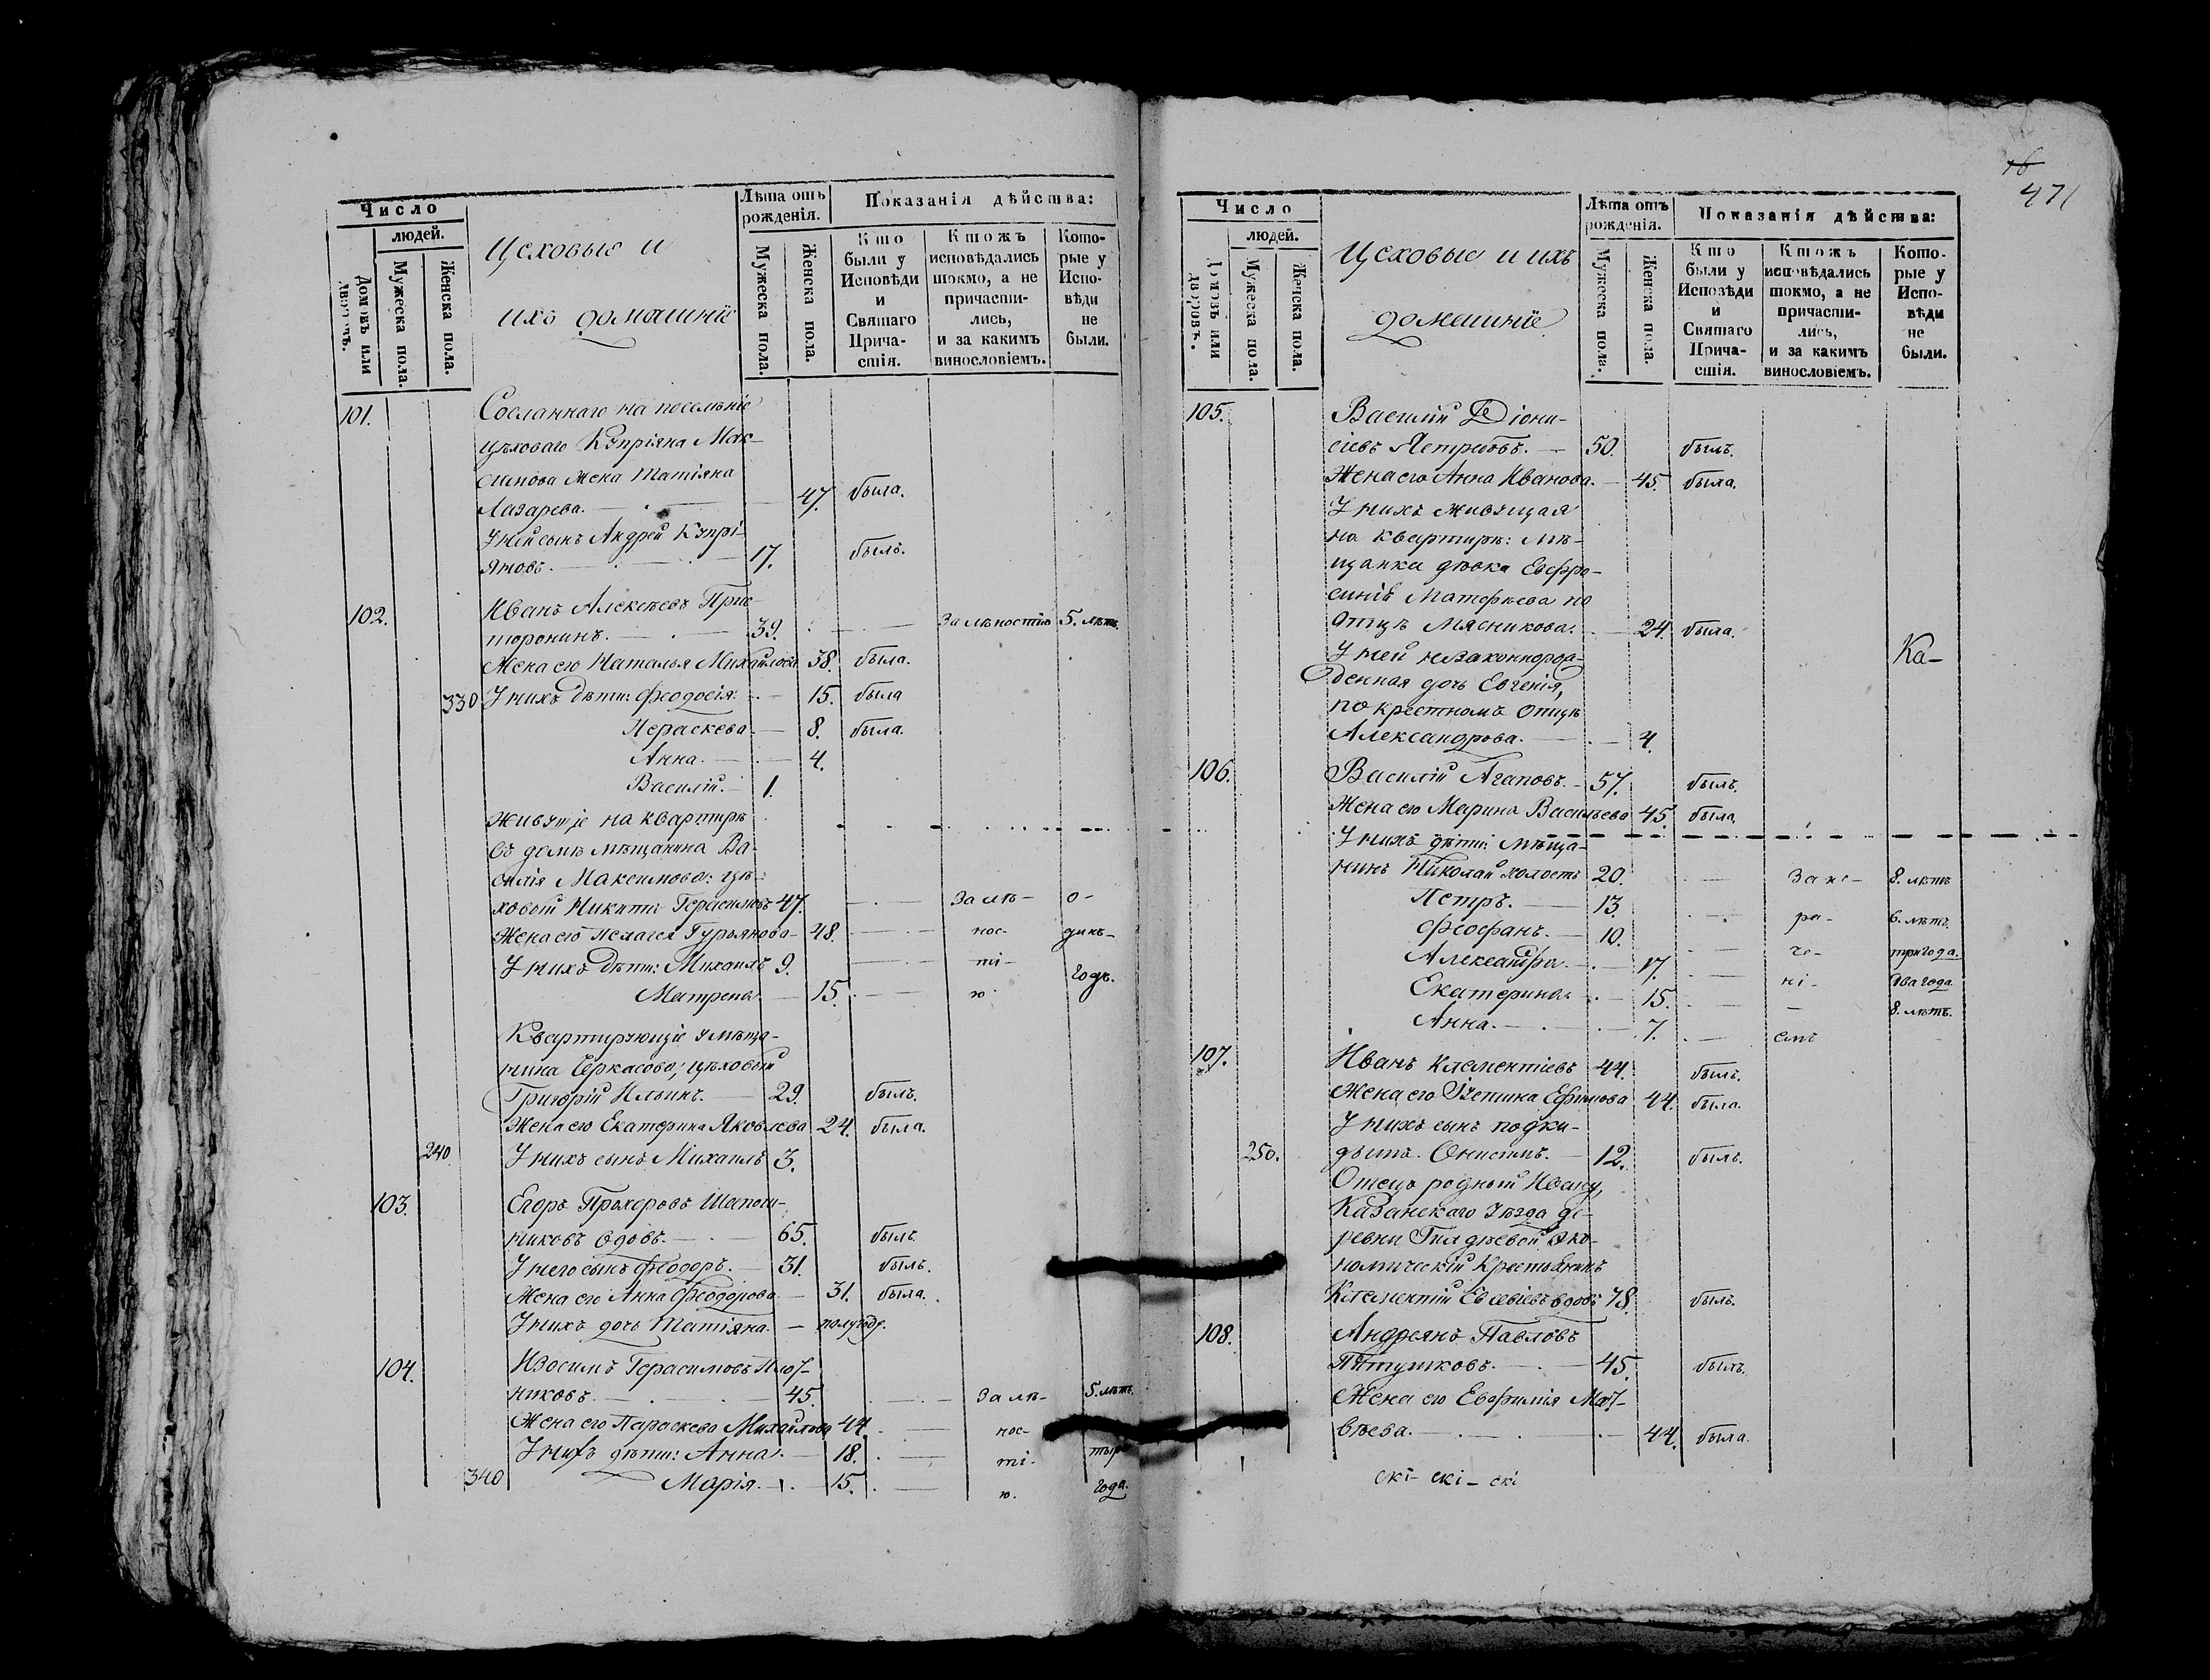 Число
людей.
Домовъ или дворовъ.
Мужеска пола.
Женска пола.
Цеховые и
ихъ домашніе
Лѣта отъ
рожденія.
Мужеска пола.
Женска пола.
Показанія дѣйства:
Кто
были у
Исповѣди
и
Святаго
Прича-
стія.
Ктожъ
исповѣдались
токмо, а не
причасти-
лись,
и за какимъ
винословіемъ.
Кото-
рые у
Испо-
вѣди
не
были.
101. Сосланнаго на поселѣніе
цѣховаго Купріяна Мак-
симова жена Татіяна
Лазарева. 47. была.
У ней сынъ Андрей Купрі-
яновъ. 17. былъ.
102. Иванъ Алексѣевъ При-
торонинъ. 39. За лѣностію 5. лѣтъ.
Жена его Наталья Михайлова 38. была.
330 У нихъ дѣти: Феодосія 15. была
Параскева 8. была.
Анна. 4.
Василій. 1.
Живущіе на квартирѣ
въ домѣ мѣщанина Ва-
силія Максимова: цѣ-
ховой Никита Герасимовъ 47. За лѣ- о-
Жена его Пелагея Гурьянова 48. нос- динъ-
У нихъ дѣти: Михаилъ 9. ті- годъ.
Матрена 15. ю.
Квартирующіе у мѣща-
нина Черкасова; цѣховый
Григорій Ильинъ. 29. былъ.
Жена его Екатерина Яковлева 24. была.
240 У нихъ сынъ Михаилъ 3.
103. Егоръ Прохоровъ Шапош-
никовъ вдовъ. 65. былъ.
У него сынъ Феодоръ. 31. былъ.
Жена его Анна Феодорова 31. была.
У нихъ дочь Татіяна. полугоду.
104. Изосимъ Герасимовъ Плот-
никовъ. 45. За лѣ- 5. лѣтъ.
Жена его Параскева Михайлова 44. нос-
У нихъ дѣти: Анна. 18. ті-
340 Марія. 15. ю. года.
471
Число
людей.
Домовъ или дворовъ.
Мужеска пола.
Женска пола.
Цеховые и ихъ
домашніе
Лѣта отъ
рожденія.
Мужеска пола.
Женска пола.
Показанія дѣйства:
Кто
были у
Исповѣди
и
Святаго
Прича-
стія.
Ктожъ
исповѣдались
токмо, а не
причасти-
лись,
и за какимъ
винословіемъ.
Кото-
рые у
Испо-
вѣди
не
были.
105. Василій Діони-
сіевъ Петровъ. 50. былъ.
Жена его Анна Иванова. 45. была.
У нихъ живущая
на квартирѣ: мѣ-
щанка дѣвка Евфро-
синія Матфѣева по
отцѣ Мясникова. 24. была.
У ней незаконнорож-
денная дочь Евгенія,
по крестномъ отцѣ
Александрова. 4.
Ка-
106. Василій Агаповъ. 57. былъ.
Жена его Марина Васильева 45. была.
У нихъ дѣти: мѣща-
нинъ Николай холостъ 20. За не- 8. лѣтъ
Петръ. 13. ра- 6. лѣтъ.
Феофанъ. 10. че- три года.
Александра. 17. ні- два года
Екатерина. 15. 8. лѣтъ.
Анна. 7. емъ
107. Иванъ Клементіевъ 44. былъ.
Жена его Устина Ефимова 44. была.
У нихъ сынъ подки-
250. дышъ. Онисимъ. 12. былъ.
Отецъ родный Ивану,
Казанскаго уѣзда де-
ревни эко-
номическій крестьянинъ
Клементій Евсевіевъ вдовъ 78. былъ.
108. Андреянъ Павловъ
Пѣтушковъ. 45. былъ.
Жена его Евфимія Мат-
вѣева. 44. была.
скі- скі- скі